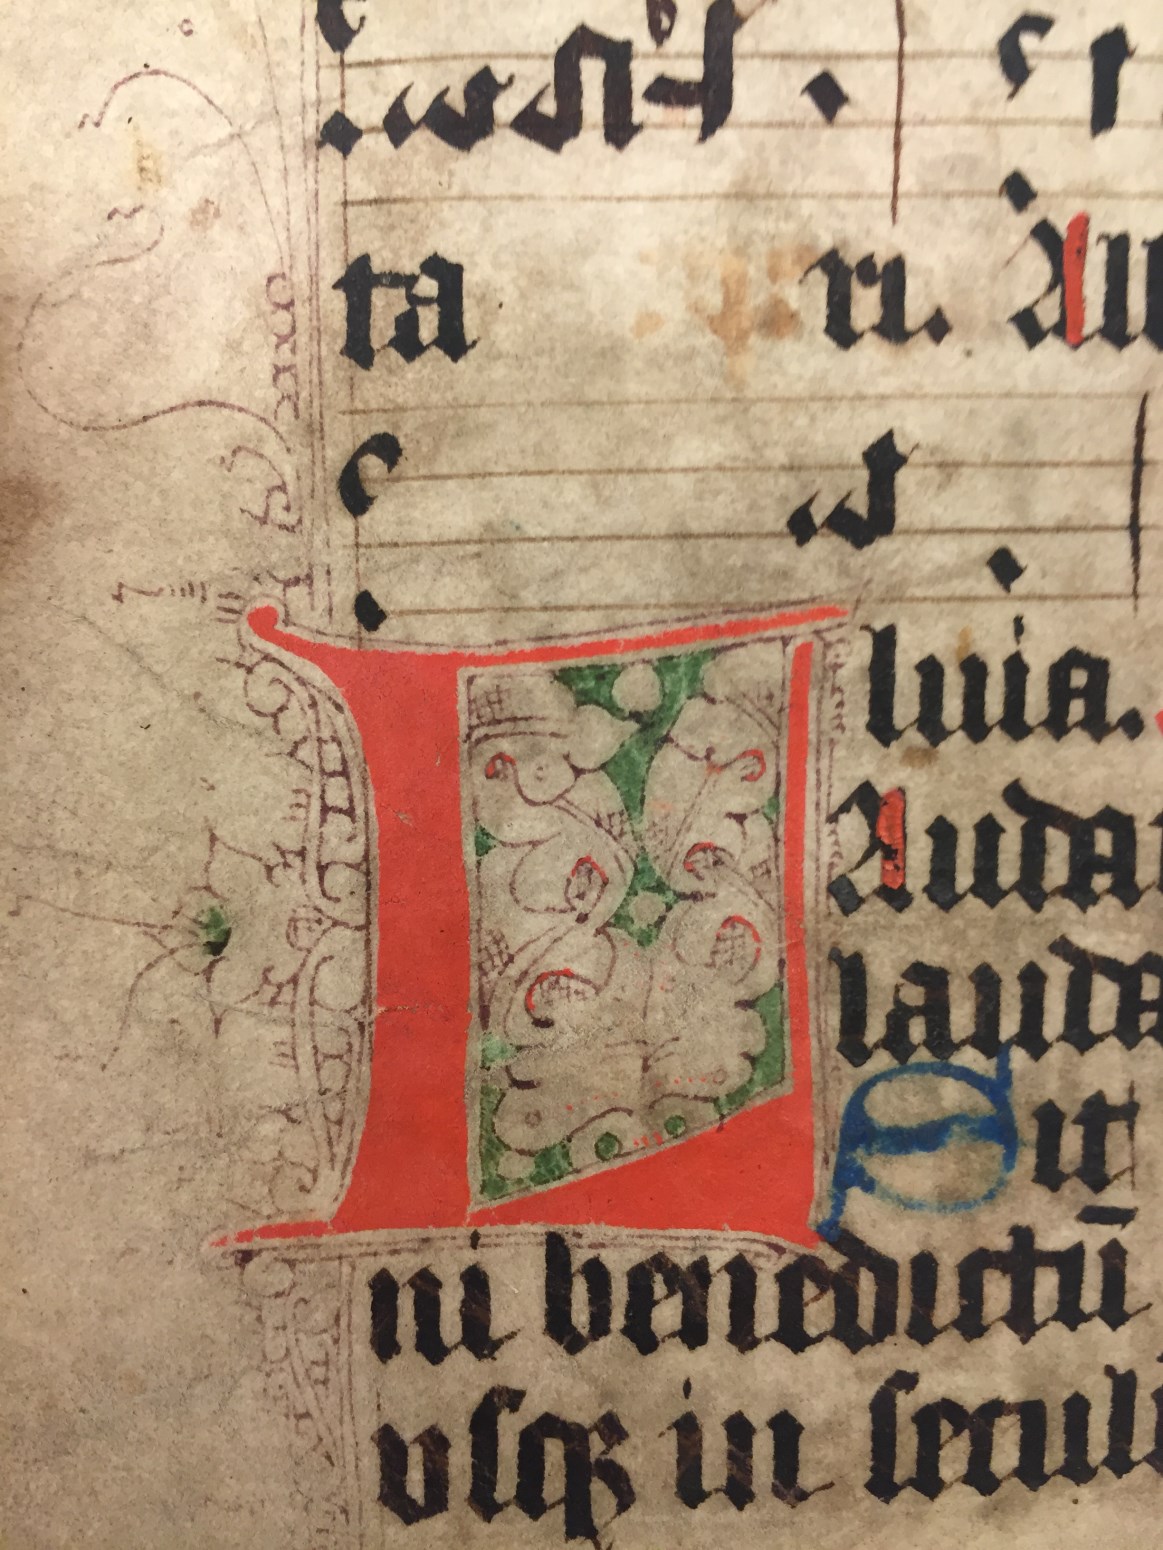 ta ri. All
luia.
L Auda
lauda
Sit
ni benedictū
vsqꝫ in seculi